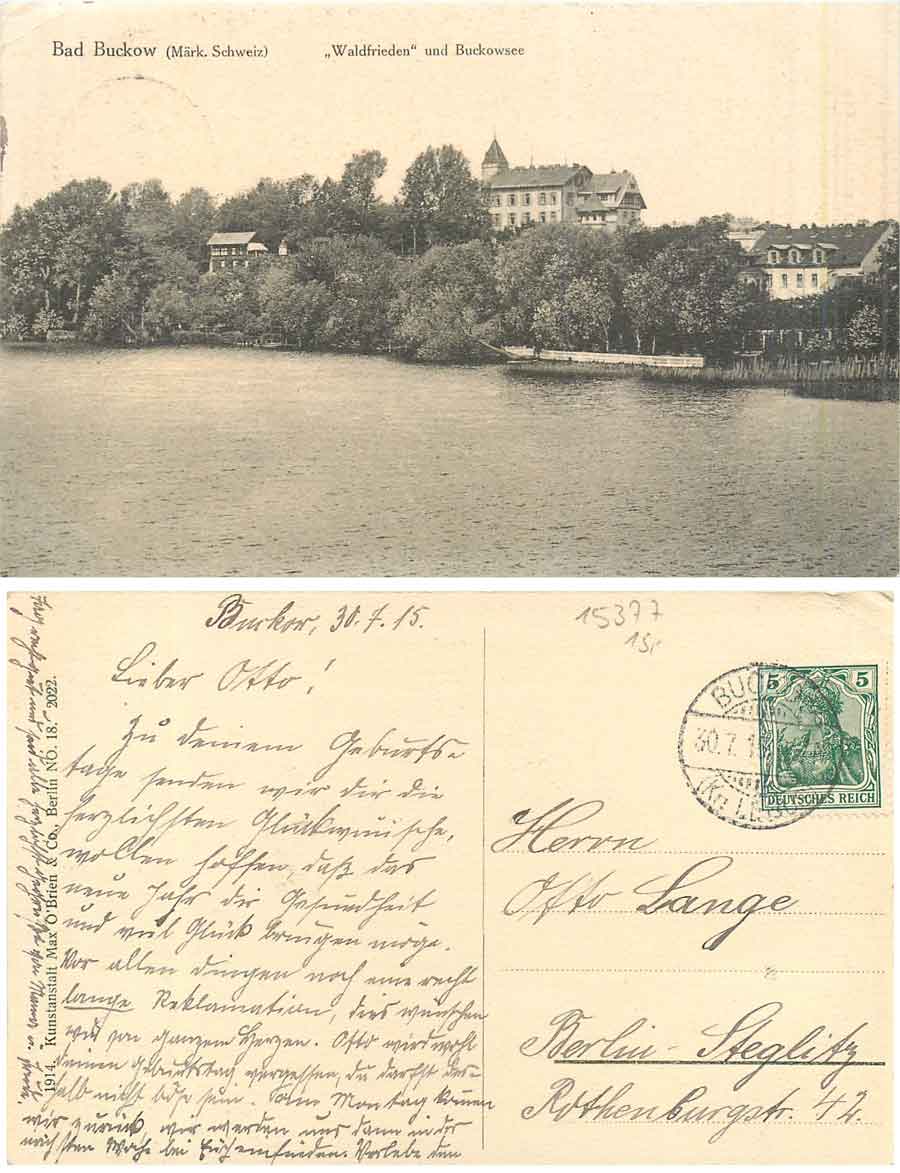 Bad Buckow (Märk. Schweiz) „Waldfrieden“ und Buckowsee
Buckow, 30.7.15.
15377
Lieber Otto!
Zu deinem Geburts-
tage senden wir dir die
herzlichsten Glückwünsche,
wollen hoffen, daß das
neue Jahr dir Gesundheit
und viel Glück bringen möge.
Vor allen dingen noch eine recht
lange Reklamation, dies wünschen
wir von ganzem Herzen. Otto wird wohl
deinen Geburtstag vergessen, du darfst des-
halb nicht böse sein. Am Montag kommen
wir zurück wir werden uns dann in der
nächsten Woche bei Euch einfinden.
und
1914. Kunstanstalt Max O'Brien & Co., Berlin NO. 18. 2022.
BUC
30.7.1
5 5
DEUTSCHES REICH
Herrn
Otto Lange
Berlin-Steglitz
Rothenburgstr. 42.